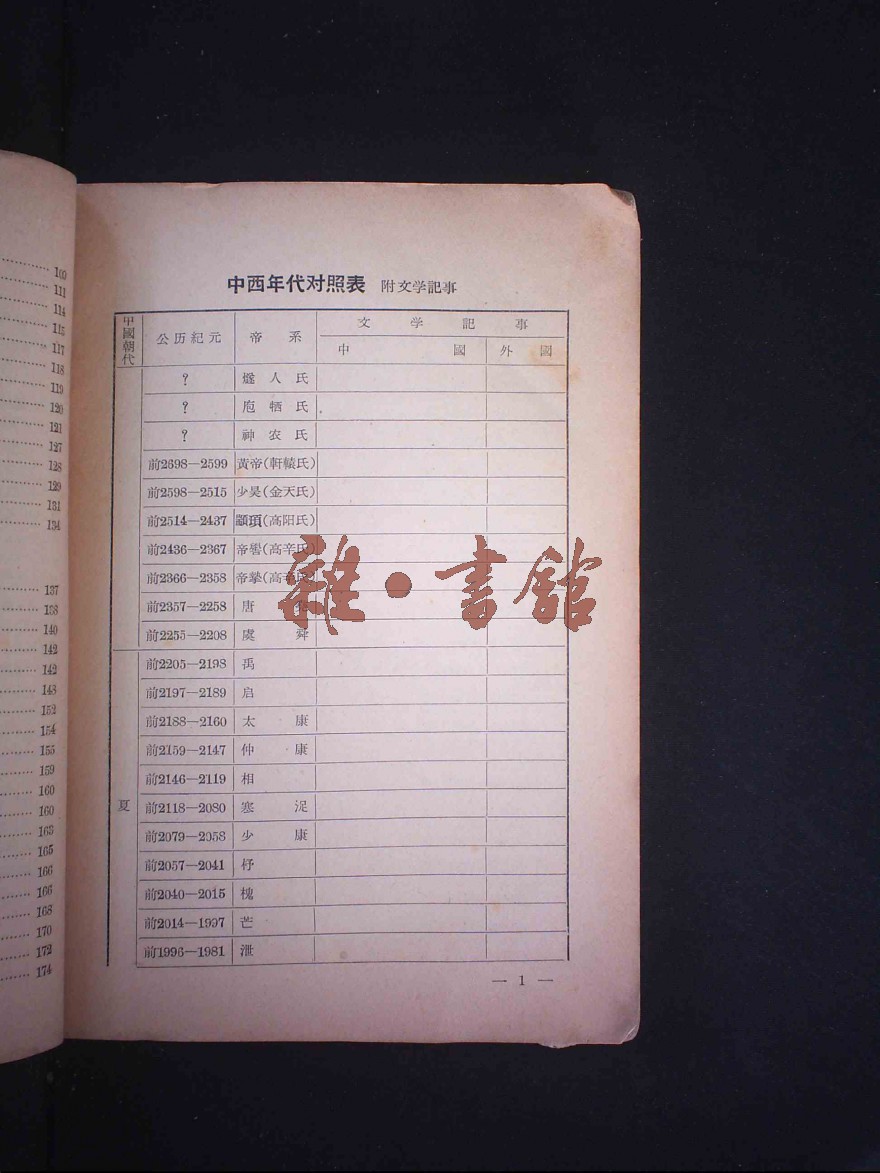 100
111
114
115
117
118
119
120
121
127
128
129
131
134
137
138
140
142
142
148
152
154
155
159
160
160
163
165
166
166
168
170
172
174
中西年代对照表 附文学記事
中國朝代 公历紀元 帝系 文学記事
中國 外國
? 燧人氏
? 庖牺氏
? 神农氏
前2698—2599 黃帝(軒轅氏)
前2598—2515 少昊(金天氏)
前2514—2437 顓頊(高阳氏)
前2436—2367 帝嚳(高辛氏)
前2366—2358 帝摯(高辛氏)
前2357—2258 唐
前2255—2208 虞舜
前2205—2198 禹
前2197—2189 启
前2188—2160 太康
前2159—2147 仲康
前2146—2119 相
夏 前2118—2080 寒浞
前2079—2058 少康
前2057—2041 杼
前2040—2015 槐
前2014—1997 芒
前1996—1981 泄
— 1 —
雜·書館